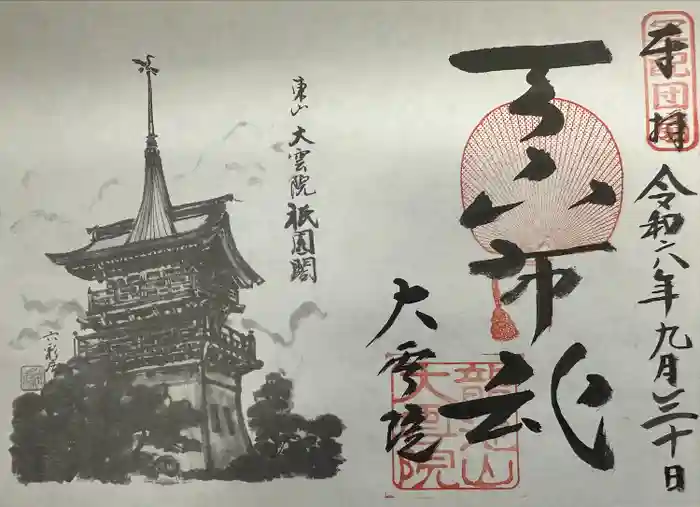 奉拝
令和六年九月三十日
天下布武
大雲院
龍池山
大雲院
東山 大雲院 祇園閣